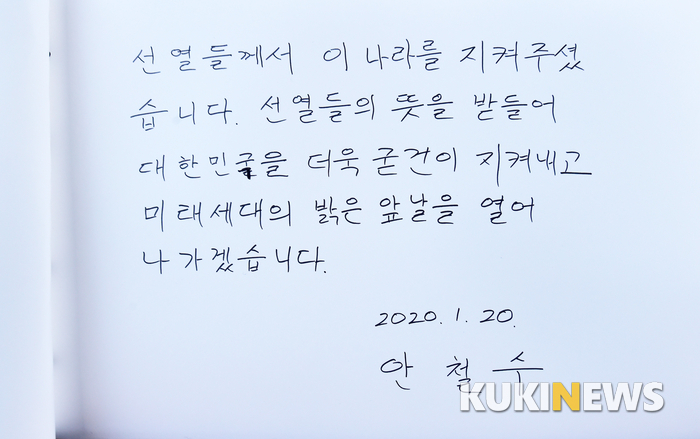 선열들께서 이 나라를 지켜주셨
습니다. 선열들의 뜻을 받들어
대한민국을 더욱 굳건이 지켜내고
미태세대의 밝은 앞날을 열어
나가겠습니다.
2020. 1. 20.
안 철 수
KUKINEWS